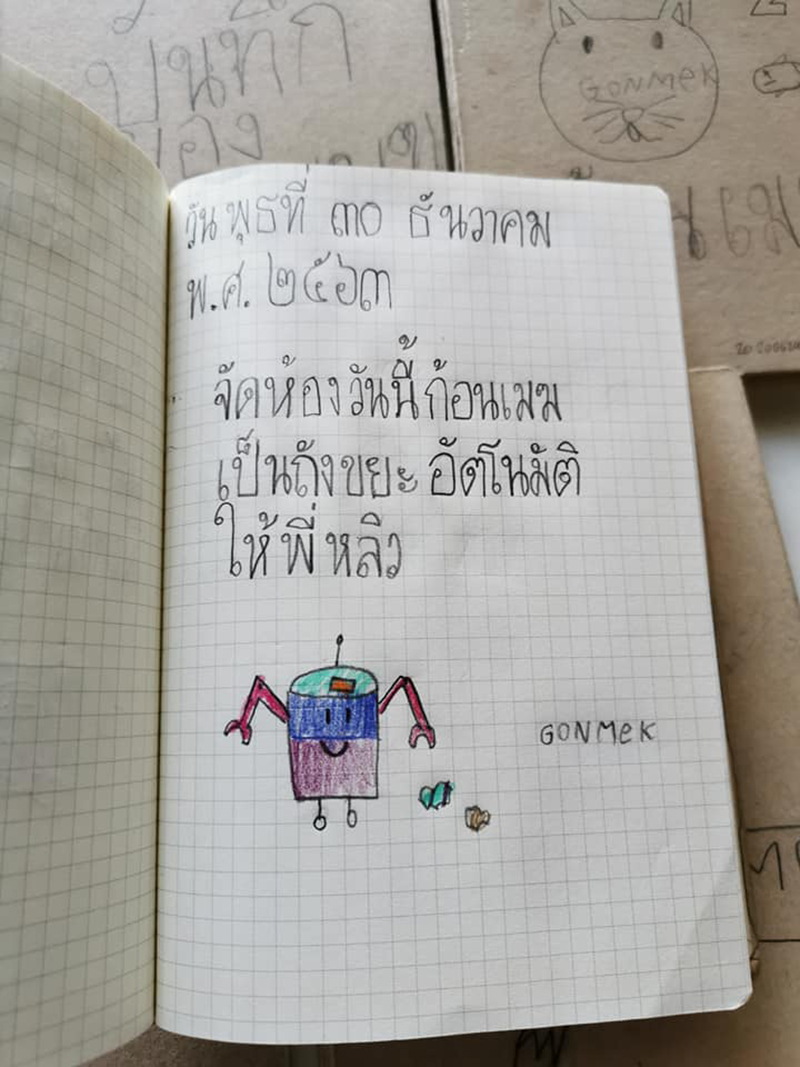 บันทึก
ของ
GONMEK
วันพุธที่ ๓๐ ธันวาคม
พ.ศ. ๒๕๖๓
จัดห้องวันนี้ก้อนเมฆ
เป็นถังขยะ อัตโนมัติ
ให้พี่หลิว
GONMEK